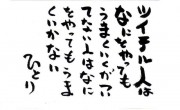 ツイテル人は
なにをやっても
うまくいくがつい
てない人はなに
をやってもうま
くいかない
ひとり